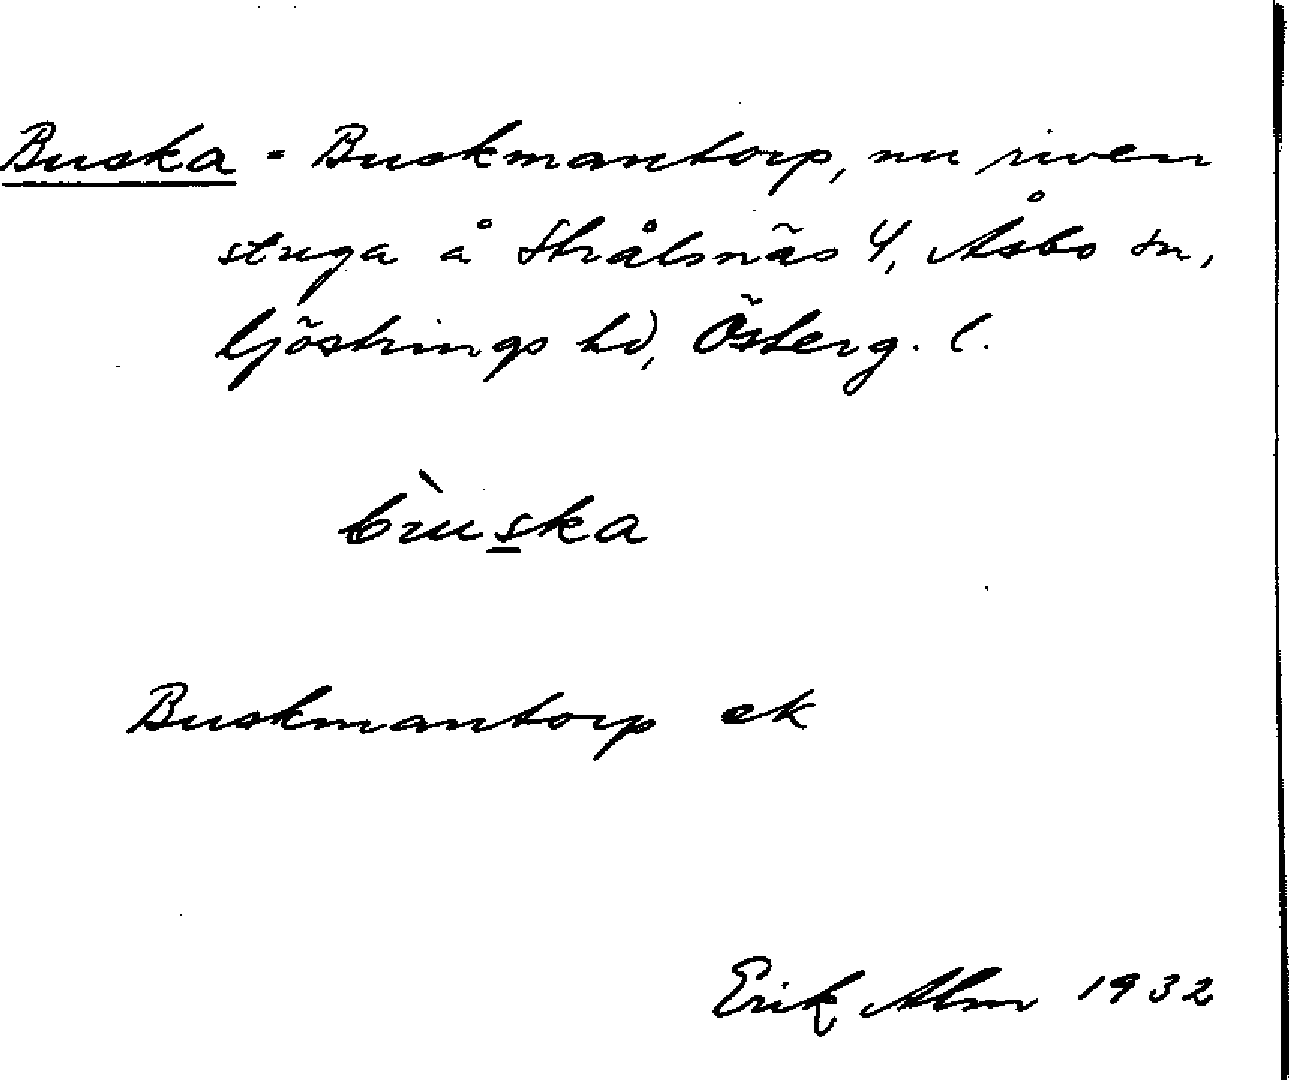 Buska = Buskmantorp, nu riven
stuga å Strålsnäs 4, Åsbo sn,
Göstrings hd, Österg. l.
bùska
Buskmantorp ek
Erik Alm 1932